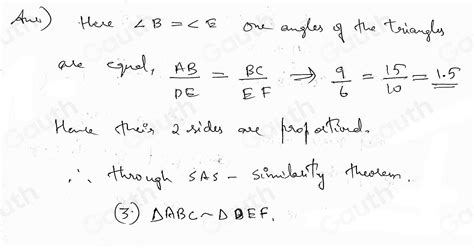 Ans) Here ∠B = ∠E one angles of the triangles
are equal, AB/DE = BC/EF ⇒ 9/6 = 15/10 = 1.5
Hence their 2 sides are proportional.
∴ through SAS - Similarity theorem.
(3) ΔABC ~ ΔDEF.